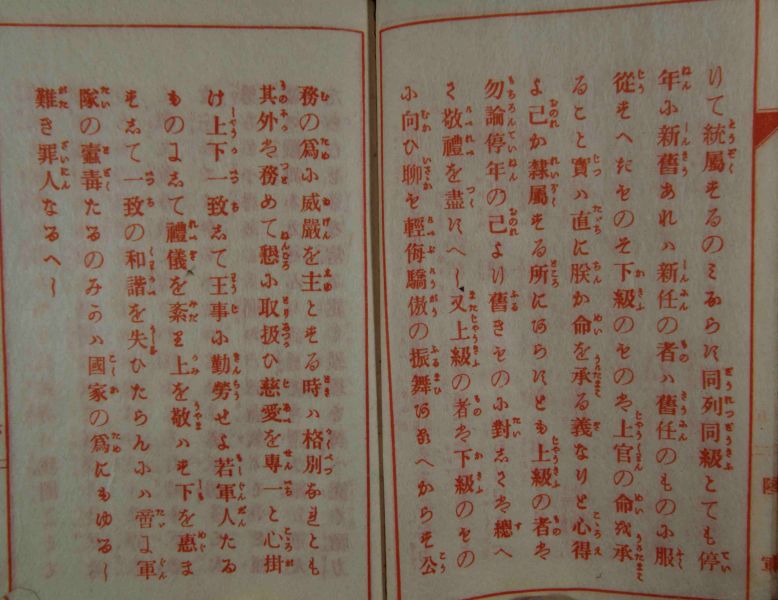 陸軍
りて統屬するのみならす同列同級とても停
年に新舊あれは新任の者は舊任のものに服
從すへきものそ下級のものは上官の命を承
ること實は直に朕か命を承る義なりと心得
よ己か隷屬する所にあらすとも上級の者は
勿論停年の己より舊きものに對しては總へ
て敬禮を盡すへし又上級の者は下級のもの
に向ひ聊も輕侮驕傲の振舞あるへからす公
務の爲に威嚴を主とする時は格別なれとも
其外は務めて懇に取扱ひ慈愛を專一と心掛
け上下一致して王事に勤勞せよ若軍人たる
ものにして禮儀を紊り上を敬はす下を惠ま
すして一致の和諧を失ひたらんには啻に軍
隊の蠧毒たるのみかは國家の爲にもゆるし
難き罪人なるへし